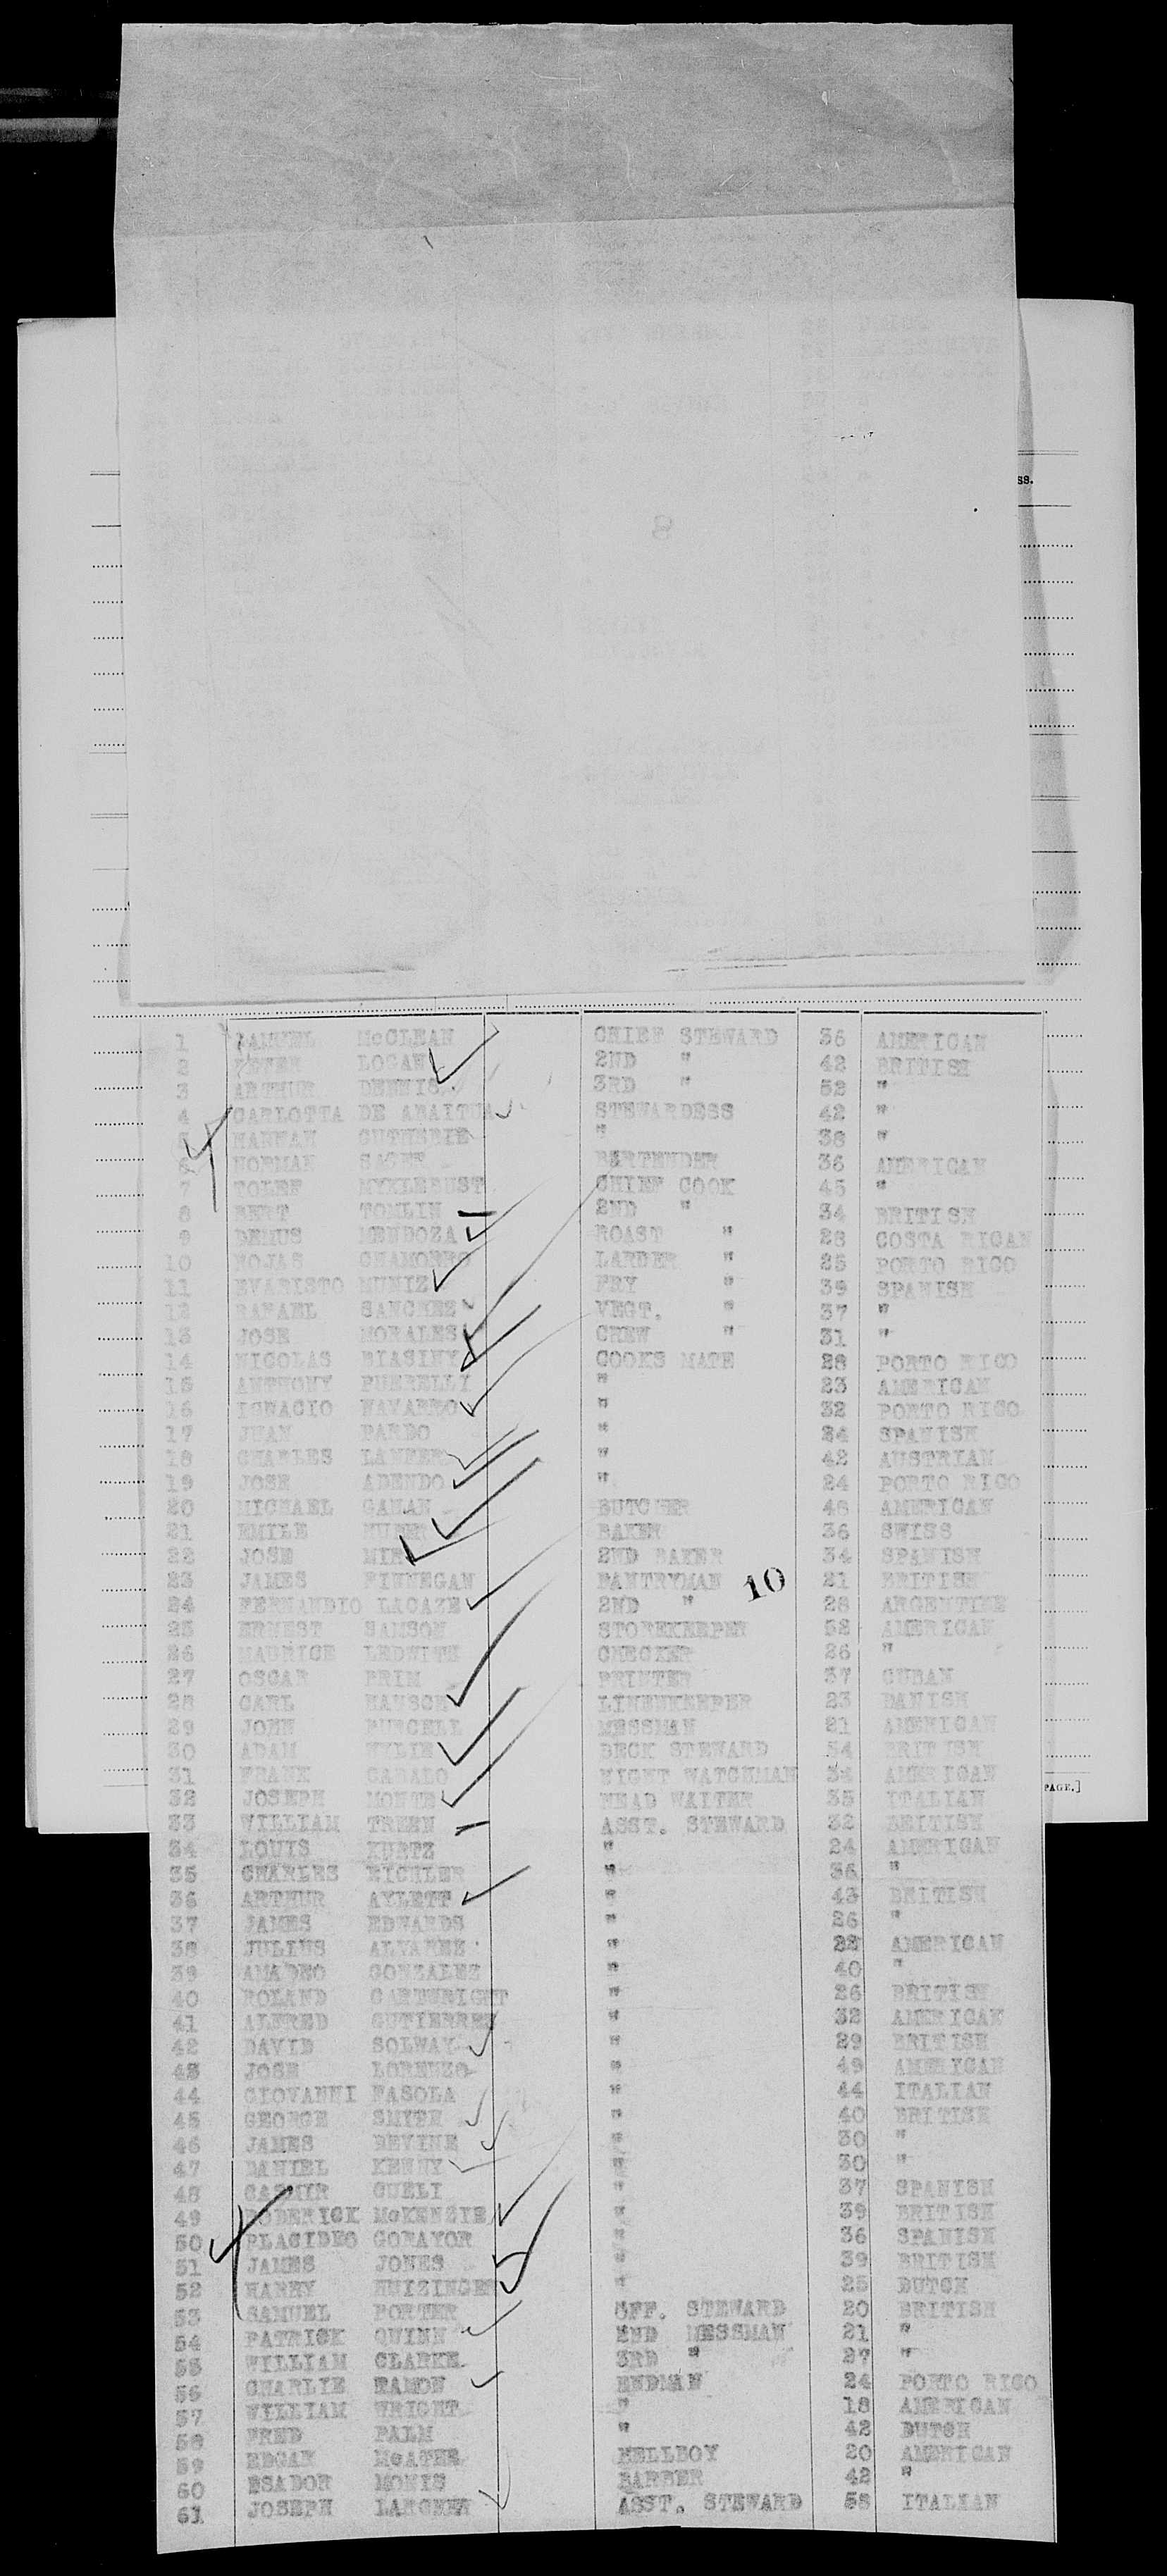 8
ss.
1 SAMUEL McCLEAN CHIEF STEWARD 36 AMERICAN
2 PETER LOGAN 2ND " 42 BRITISH
3 ARTHUR DENNIS 3RD " 52 "
4 CARLOTTA DE ABAITUA STEWARDESS 42 "
5 HANNAH GUTHRRIE " 38 "
6 NORMAN SAGET BARTENDER 36 AMERICAN
7 TOLEF MYKLEBUST CHIEF COOK 45 "
8 BERT TOMLIN 2ND " 34 BRITISH
9 DEMUS MENDOZA ROAST " 28 COSTA RICAN
10 ROJAS CHAMORRO LARDER " 25 PORTO RICO
11 EVARISTO MUNIZ FRY " 39 SPANISH
12 RAFAEL SANCHEZ VEGT. " 37 "
13 JOSE MORALES CREW " 31 "
14 NICOLAS BIASINY COOKS MATE 28 PORTO RICO
15 ANTHONY PURRELLI " 23 AMERICAN
16 IGNACIO NAVARRO " 32 PORTO RICO
17 JUAN PARDO " 34 SPANISH
18 CHARLES LANKER " 42 AUSTRIAN
19 JOSE ADENDO " 24 PORTO RICO
20 MICHAEL GAHAN BUTCHER 48 AMERICAN
21 EMILE HUBER BAKER 36 SWISS
22 JOSE MIR 2ND BAKER 34 SPANISH
23 JAMES FINNEGAN PANTRYMAN 10 21 BRITISH
24 FERNANDIO LACAZE 2ND " 28 ARGENTINE
25 ERNEST SAMSON STOREKEEPER 52 AMERICAN
26 MAURICE LEDWITH CHECKER 26 "
27 OSCAR PRIM PRINTER 37 CUBAN
28 CARL HANSCH LINENKEEPER 23 DANISH
29 JOHN PURCELL MESSMAN 21 AMERICAN
30 ADAM WYLIE DECK STEWARD 54 BRITISH
31 FRANK CABALO NIGHT WATCHMAN 34 AMERICAN
PAGE.]
32 JOSEPH MONTE HEAD WAITER 35 ITALIAN
33 WILLIAM TREEN ASST. STEWARD 32 BRITISH
34 LOUIS KURTZ " 24 AMERICAN
35 CHARLES EICHLER " 36 "
36 ARTHUR AYLETT " 43 BRITISH
37 JAMES EDWARDS " 26 "
38 JULIUS ALVAREZ " 22 AMERICAN
39 AMADEO GONZALEZ " 40 "
40 ROLAND CARTWRIGHT " 26 BRITISH
41 ALFRED GUTIERREZ " 32 AMERICAN
42 DAVID SOLWAY " 29 BRITISH
43 JOSE LORENZO " 49 AMERICAN
44 GIOVANNI FASOLA " 44 ITALIAN
45 GEORGE SMYTH " 40 BRITISH
46 JAMES DEVINE " 30 "
47 DANIEL KENNY " 30 "
48 CASMIR GUELI " 37 SPANISH
49 RODERICK McKENZIE " 39 BRITISH
50 PLACIDEO GORAYOR " 36 SPANISH
51 JAMES JONES " 39 BRITISH
52 HARRY HUIZINGER " 25 DUTCH
53 SAMUEL PORTER OFF. STEWARD 20 BRITISH
54 PATRICK QUINN 2ND MESSMAN 21 "
55 WILLIAM CLARKE 3RD " 27 "
56 CHARLIE RAMON ENDMAN 24 PORTO RICO
57 WILLIAM WRIGHT " 18 AMERICAN
58 FRED PALM " 42 DUTCH
59 EDGAR McATEE BELLBOY 20 AMERICAN
60 ESADOR MONIS BARBER 42 "
61 JOSEPH LARGHEN ASST. STEWARD 58 ITALIAN